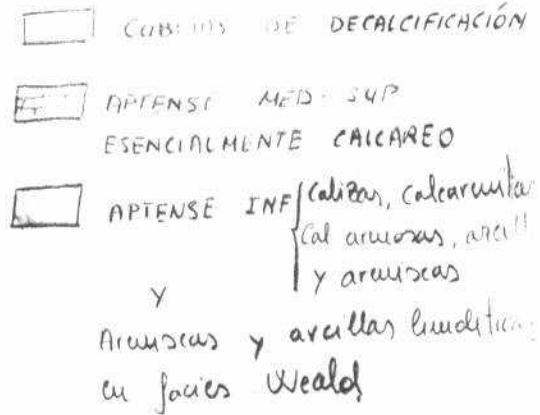 DE DECALCIFICACIÓN
APTENSE MED-SUP
ESENCIALMENTE CALCAREO
APTENSE INF { Calizas, Calcarenitas
Cal arenosas, arcill
y areniscas
y
Areniscas y arcillas
en facies Weald